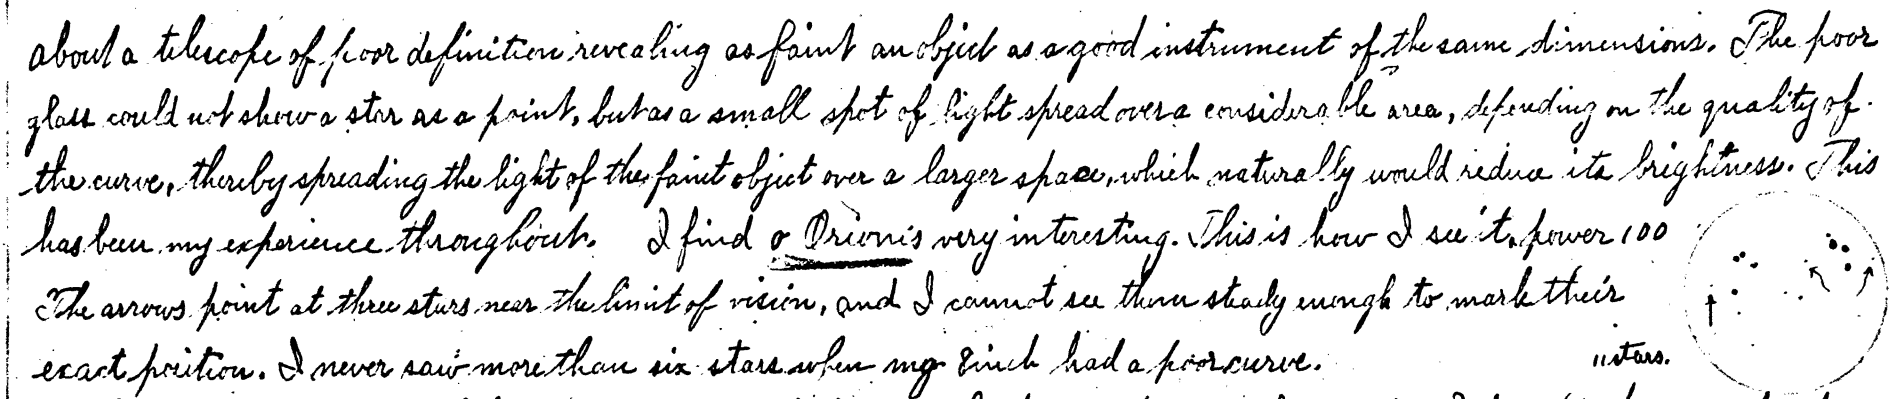 about a telescope of poor definition revealing as faint an object as a good instrument of the same dimensions. The poor
glass could not show a star as a point, but as a small spot of light spread over a considerable area, depending on the quality of
the curve, thereby spreading the light of the faint object over a larger space, which naturally would reduce its brightness. This
has been my experience throughout. I find σ Orionis very interesting. This is how I see it, power 100
The arrows point at three stars near the limit of vision, and I cannot see them steady enough to mark their
exact position. I never saw more than six stars when my 8 inch had a poor curve.
11 stars.